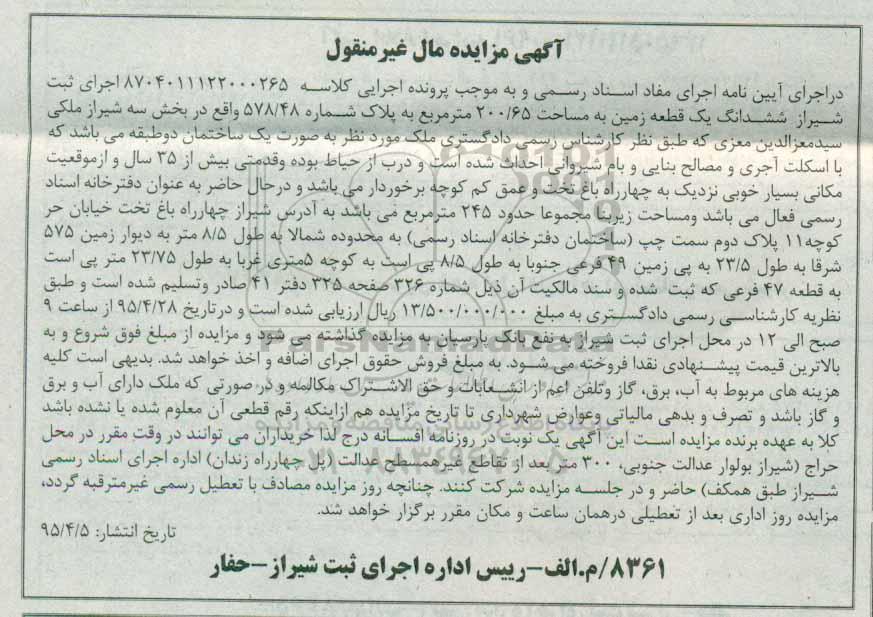 آگهی مزایده مال غیرمنقول
دراجرای آیین نامه اجرای مفاد اسناد رسمی و به موجب پرونده اجرایی کلاسه ۸۷۰۴۰۱۱۱۲۲۰۰۰۲۶۵ اجرای ثبت
شیراز ششدانگ یک قطعه زمین به مساحت ۲۰۰/۶۵ مترمربع به پلاک شماره ۵۷۸/۴۸ واقع در بخش سه شیراز ملکی
سیدمعزالدین معزی که طبق نظر کارشناس رسمی دادگستری ملک مورد نظر به صورت یک ساختمان دوطبقه می باشد که
با اسکلت آجری و مصالح بنایی و بام شیروانی احداث شده است و درب از حیاط بوده وقدمتی بیش از ۳۵ سال و ازموقعیت
مکانی بسیار خوبی نزدیک به چهارراه باغ تخت و عمق کم کوچه برخوردار می باشد و درحال حاضر به عنوان دفترخانه اسناد
رسمی فعال می باشد ومساحت زیربنا مجموعا حدود ۲۴۵ مترمربع می باشد به آدرس شیراز چهارراه باغ تخت خیابان حر
کوچه۱۱ پلاک دوم سمت چپ (ساختمان دفترخانه اسناد رسمی) به محدوده شمالا به طول ۸/۵ متر به دیوار زمین ۵۷۵
شرقا به طول ۲۳/۵ به پی زمین ۴۹ فرعی جنوبا به طول ۸/۵ پی است به کوچه ۵متری غربا به طول ۲۳/۷۵ متر پی است
به قطعه ۴۷ فرعی که ثبت شده و سند مالکیت آن ذیل شماره ۳۲۶ صفحه ۳۲۵ دفتر ۴۱ صادر وتسلیم شده است و طبق
نظریه کارشناسی رسمی دادگستری به مبلغ ۱۳/۵۰۰/۰۰۰/۰۰۰ ریال ارزیابی شده است و درتاریخ ۹۵/۴/۲۸ از ساعت ۹
صبح الی ۱۲ در محل اجرای ثبت شیراز به نفع بانک پارسیان به مزایده گذاشته می شود و مزایده از مبلغ فوق شروع و به
بالاترین قیمت پیشنهادی نقدا فروخته می شود. به مبلغ فروش حقوق اجرای اضافه و اخذ خواهد شد. بدیهی است کلیه
هزینه های مربوط به آب، برق، گاز وتلفن اعم از انشعابات و حق الاشتراک مکالمه و در صورتی که ملک دارای آب و برق
و گاز باشد و تصرف و بدهی مالیاتی وعوارض شهرداری تا تاریخ مزایده هم ازاینکه رقم قطعی آن معلوم شده یا نشده باشد
کلا به عهده برنده مزایده است این آگهی یک نوبت در روزنامه افسانه درج لذا خریداران می توانند در وقت مقرر در محل
حراج (شیراز بولوار عدالت جنوبی، ۳۰۰ متر بعد از تقاطع غیرهمسطح عدالت (پل چهارراه زندان) اداره اجرای اسناد رسمی
شیراز طبق همکف) حاضر و در جلسه مزایده شرکت کنند. چنانچه روز مزایده مصادف با تعطیل رسمی غیرمترقبه گردد،
مزایده روز اداری بعد از تعطیلی درهمان ساعت و مکان مقرر برگزار خواهد شد.
تاریخ انتشار: ۹۵/۴/۵
۸۳۶۱/م.الف-رییس اداره اجرای ثبت شیراز-حفار
ParsNamadData